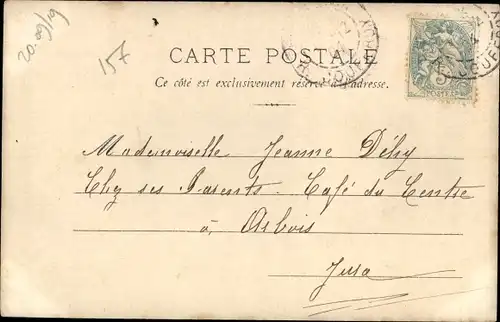 20.09/19
15F
CARTE POSTALE
Ce côté est exclusivement réservé à l'adresse.
POSTES
Mademoiselle Jeanne Déhy
Chez ses Parents. Café du Centre
à Arbois
Jura